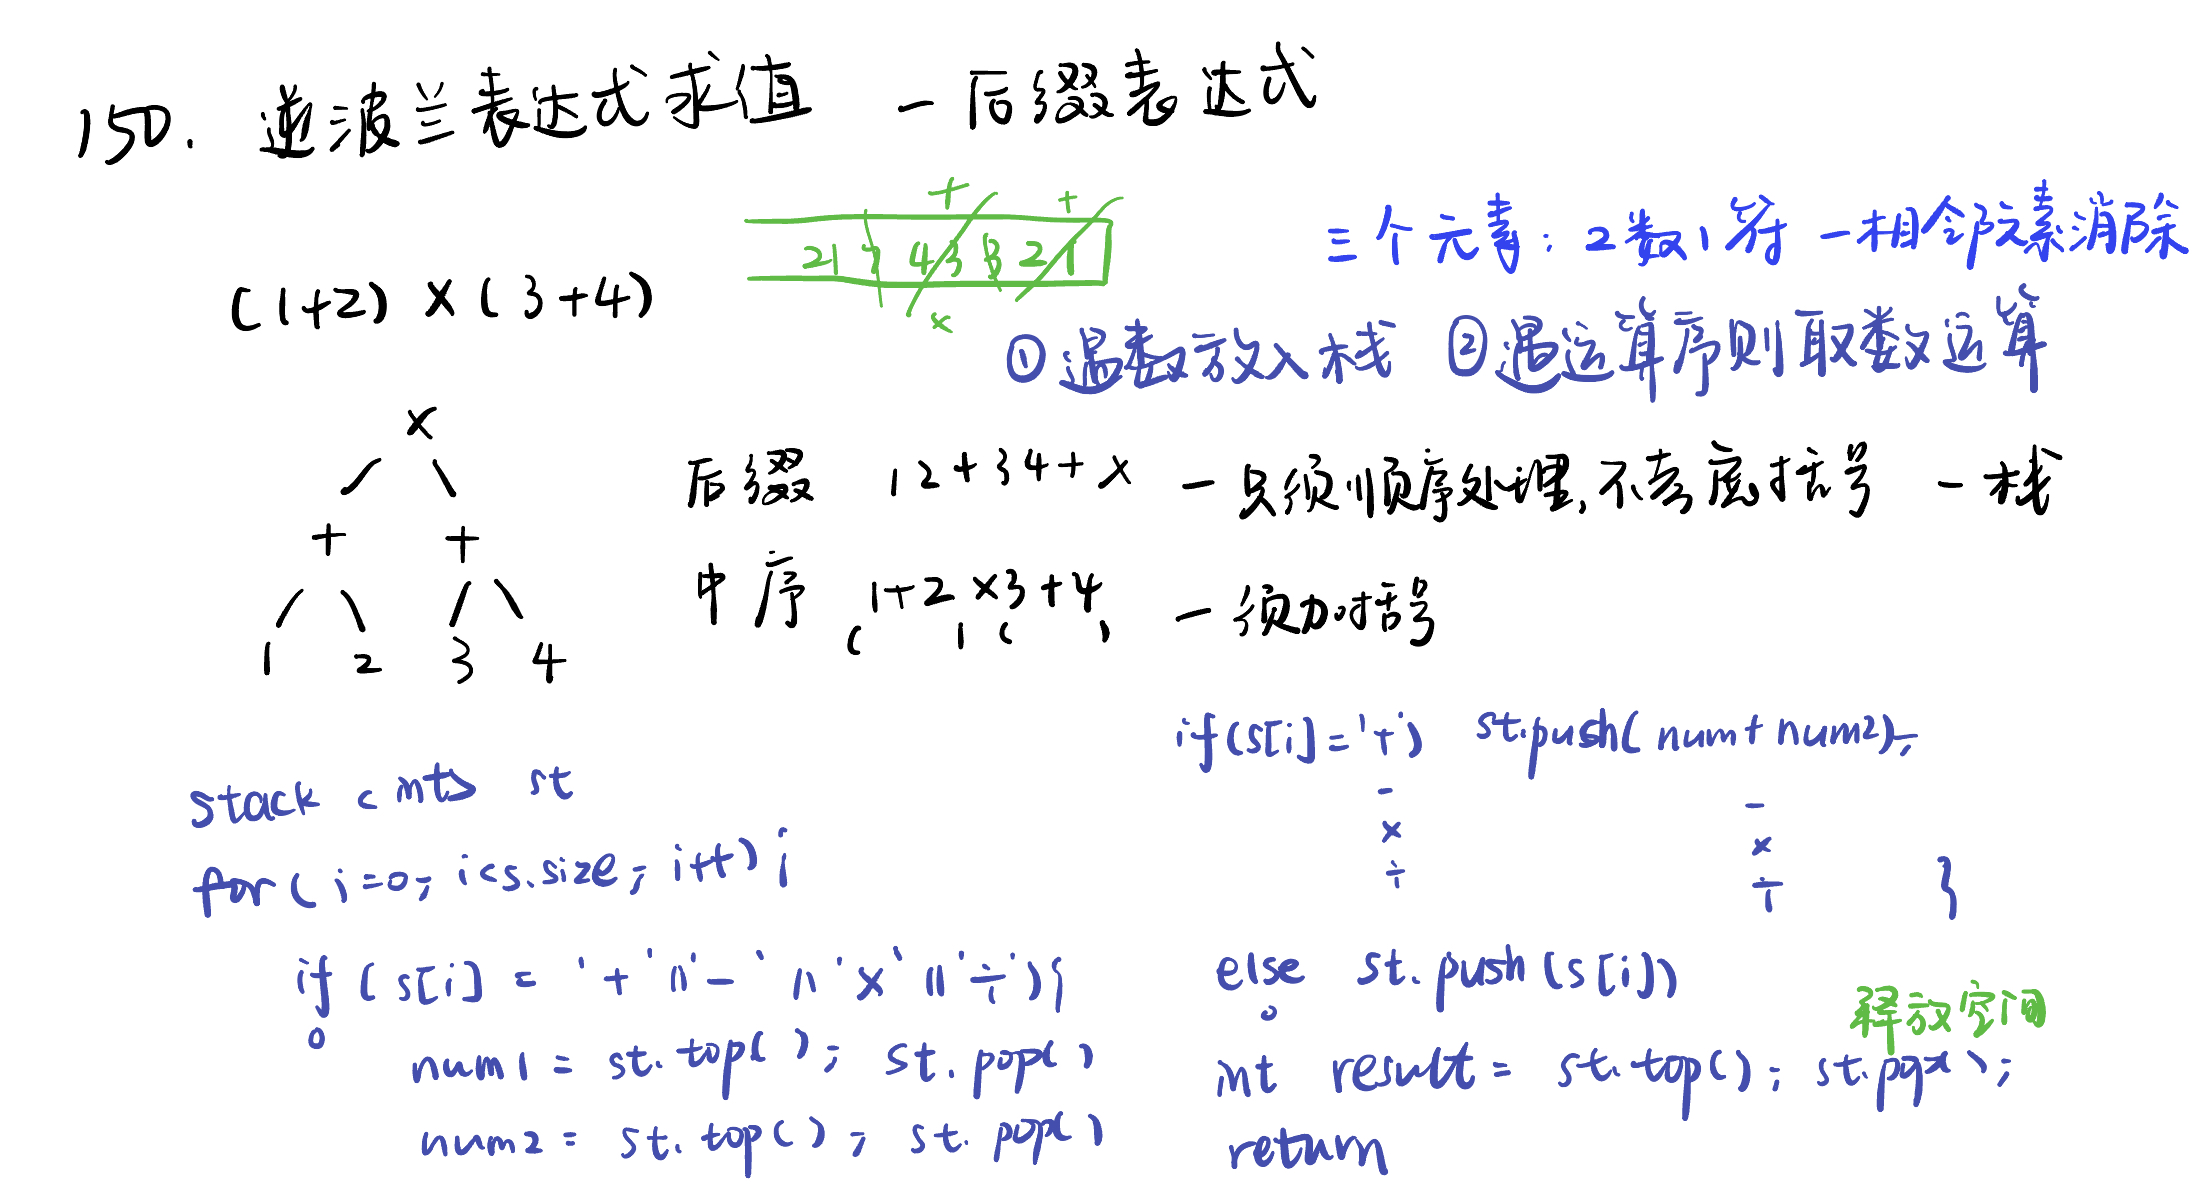 150. 逆波兰表达式求值 — 后缀表达式
+ +
21 7 4 3 3 2 1
×
三个元素: 2数1符 — 相邻元素消除
(1+2) × (3+4)
①遇数放入栈 ②遇运算序则取数运算
×
+ +
1 2 3 4
后缀 1 2 + 3 4 + × — 只须顺序处理,不考虑括号 — 栈
中序 1+2 ×3+4 — 须加括号
( ) ( )
stack <int> st
for( i=0; i<s.size; i++) {
if ( s[i] = '+' || '-' || '×' || '÷') {
num1 = st.top( ); st.pop( )
num2 = st.top( ); st.pop( )
if(s[i]='+') st.push( num+ num2);
- -
× ×
÷ ÷ }
else st.push (s[i])
释放空间
int result = st.top( ); st.pop( );
return